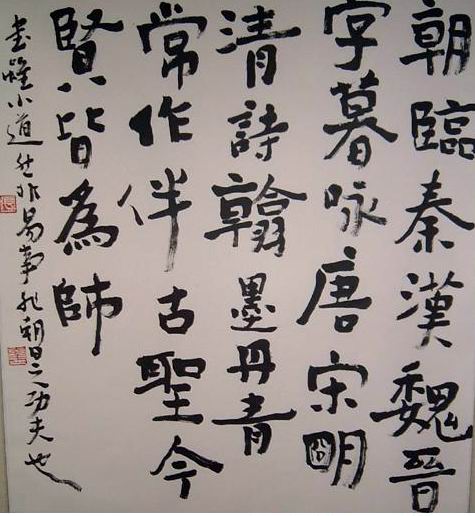 朝臨秦漢魏晉
字暮咏唐宋明
清詩翰墨丹青
常作伴古聖今
賢皆為師
書雖小道然非易事非朝日之功夫也